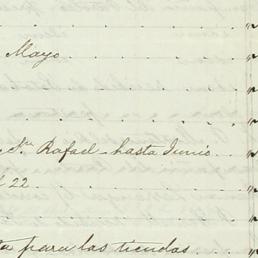 Mayo
Sn Rafael hasta Junio
22
para las tiendas